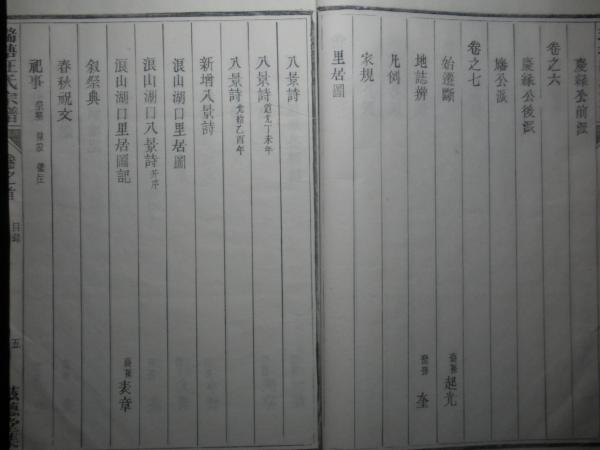 慶緣公前派
卷之六
慶緣公後派
勝公派
卷之七
始遷斷
裔孫 起光
地誌辨
裔孫 奎
凡例
家規
里居圖
八景詩
八景詩 道光丁未年
八景詩 光緒乙酉年
新增八景詩
浪山湖口里居圖
浪山湖口八景詩 并序
浪山湖口里居圖記
裔孫 表章
叙祭典
春秋祝文
祀事 祭器 陳設 儀注
汪氏宗譜
卷之首
目錄
五